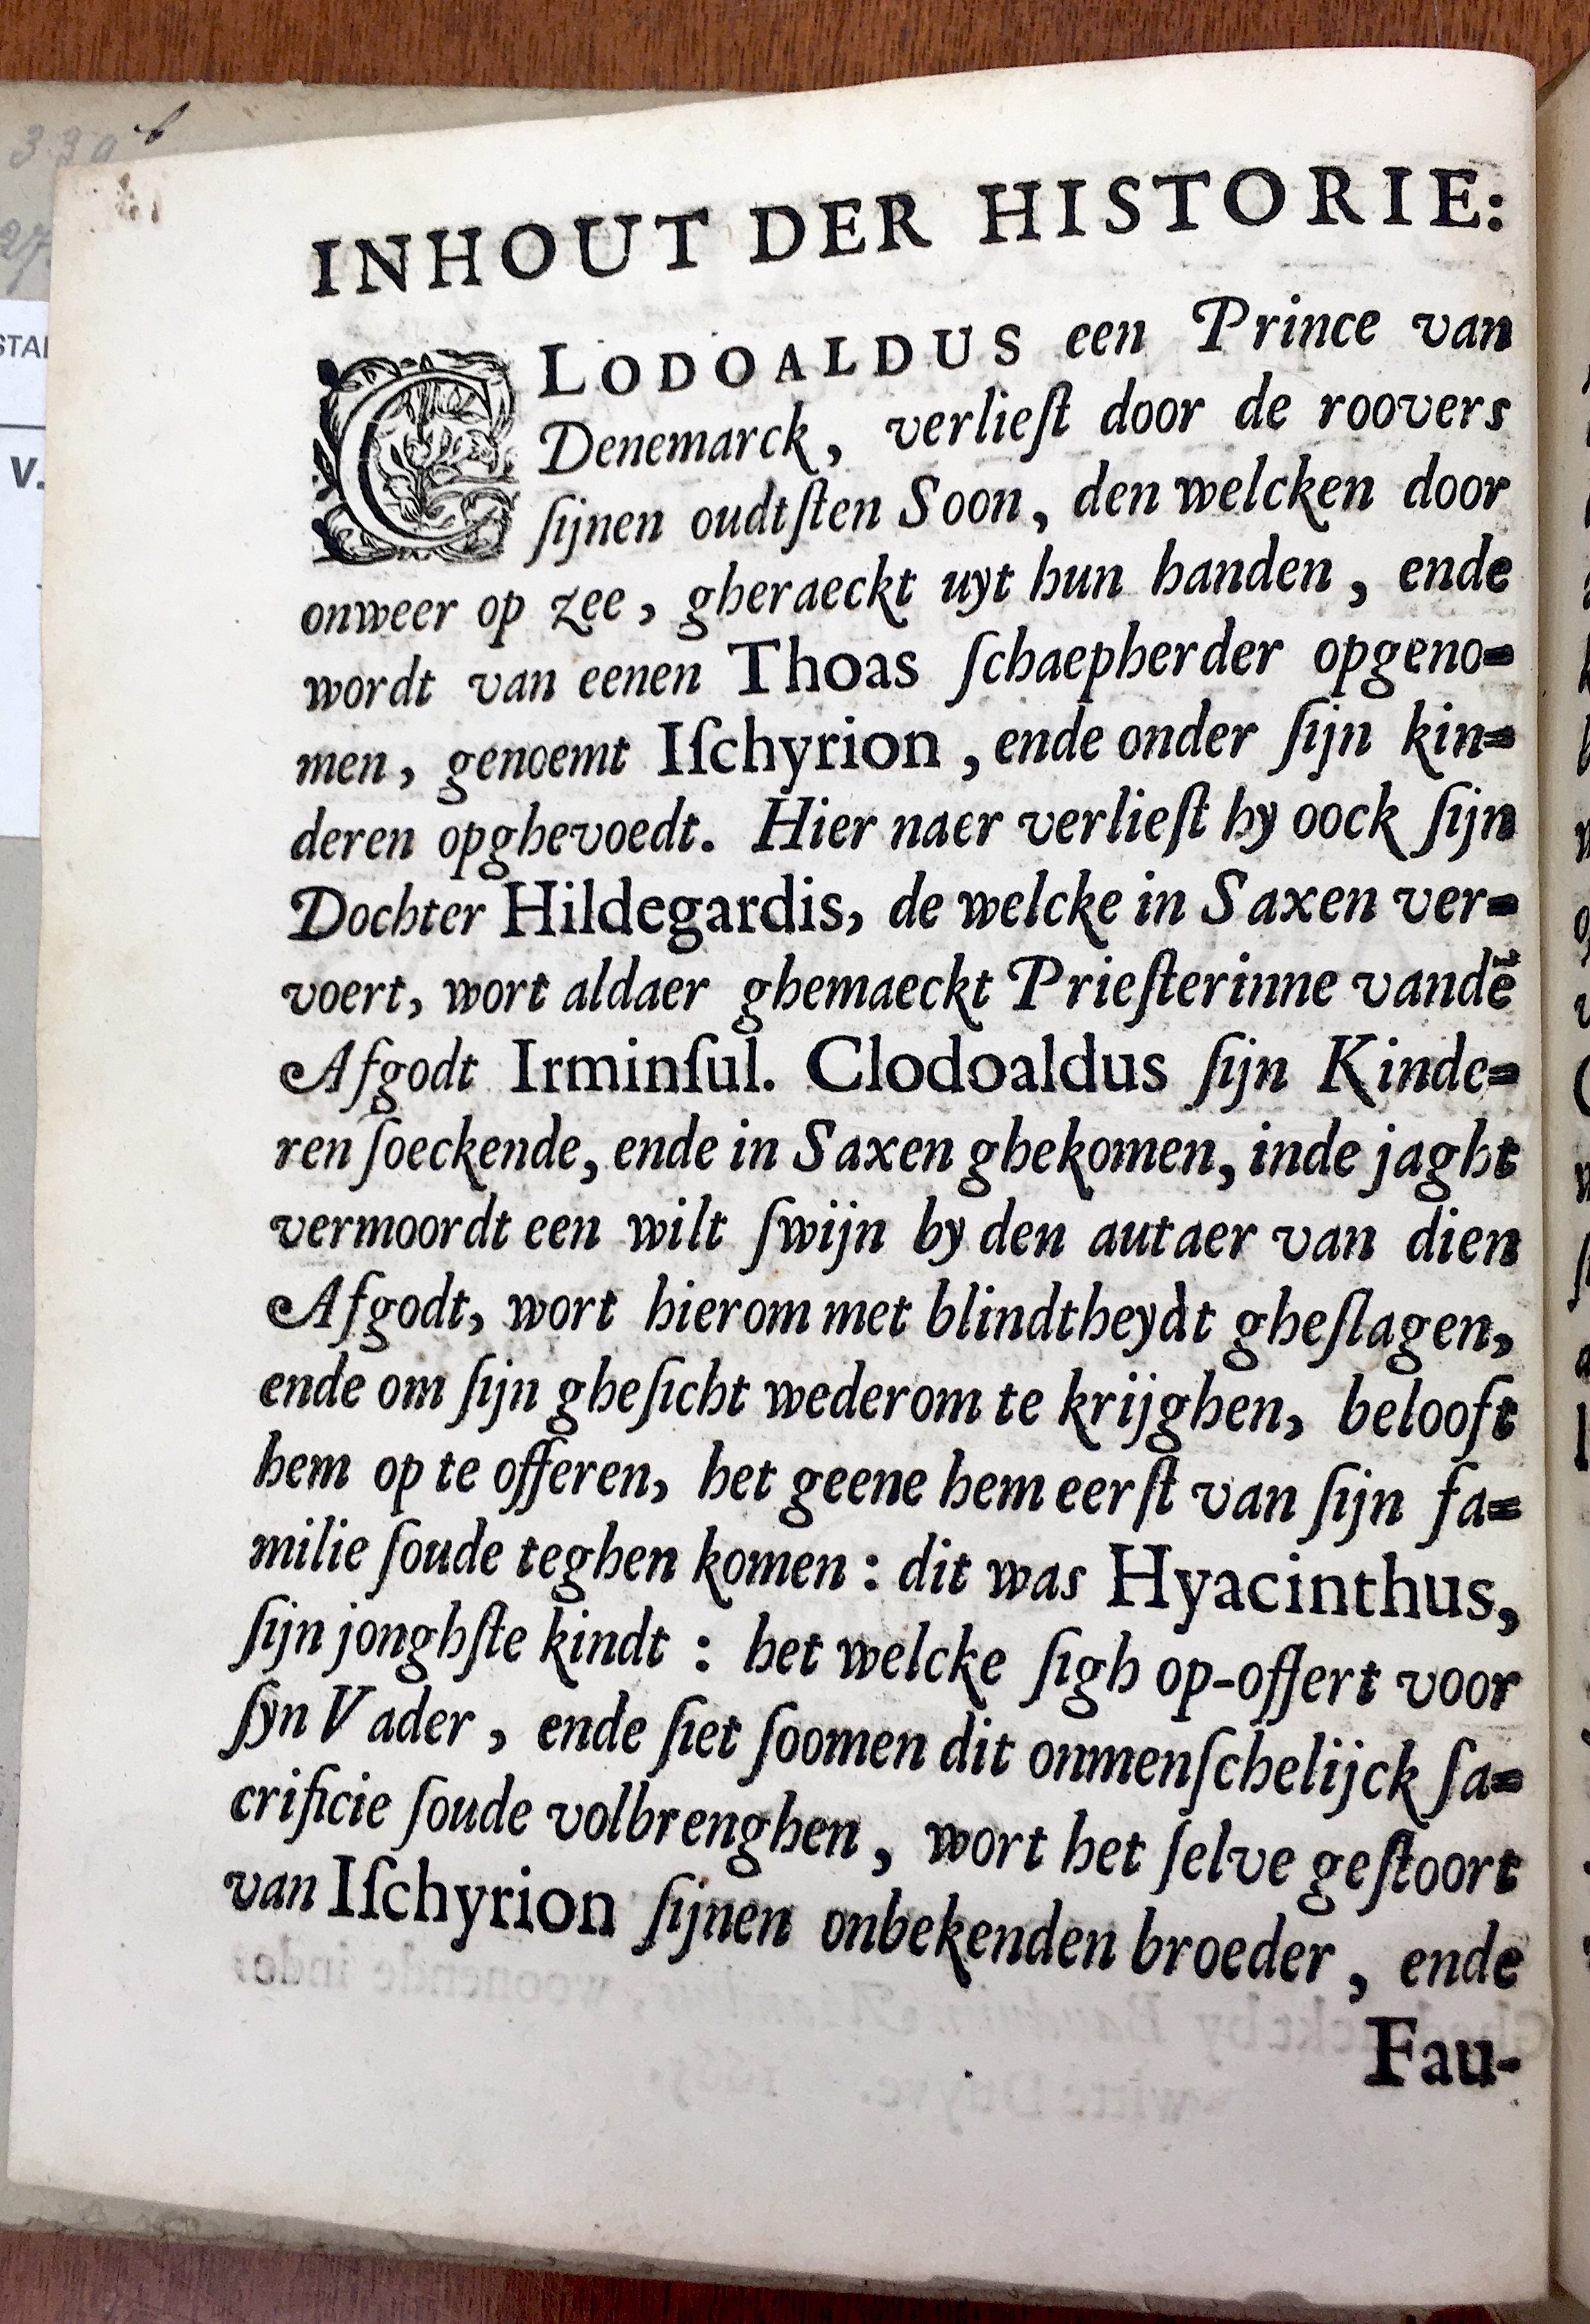 INHOUT DER HISTORIE:
CLODOALDUS een Prince van
Denemarck, verlieſt door de roovers
ſijnen oudtſten Soon, den welcken door
onweer op zee, gheraeckt uyt hun handen, ende
wordt van eenen Thoas ſchaepherder opgeno=
men, genoemt Iſchyrion, ende onder ſijn kin=
deren opghevoedt. Hier naer verlieſt hy oock ſijn
Dochter Hildegardis, de welcke in Saxen ver=
voert, wort aldaer ghemaeckt Prieſterinne vandẽ
Afgodt Irminſul. Clodoaldus ſijn Kinde=
ren ſoeckende, ende in Saxen ghekomen, inde jaght
vermoordt een wilt ſwijn by den autaer van dien
Afgodt, wort hierom met blindtheydt gheſlagen,
ende om ſijn gheſicht wederom te krijghen, belooft
hem op te offeren, het geene hem eerſt van ſijn fa=
milie ſoude teghen komen: dit was Hyacinthus,
ſijn jonghſte kindt: het welcke ſigh op-offert voor
ſyn Vader, ende ſiet ſoomen dit onmenſchelijck ſa=
crificie ſoude volbrenghen, wort het ſelve geſtoort
van Iſchyrion ſijnen onbekenden broeder, ende
Fau-